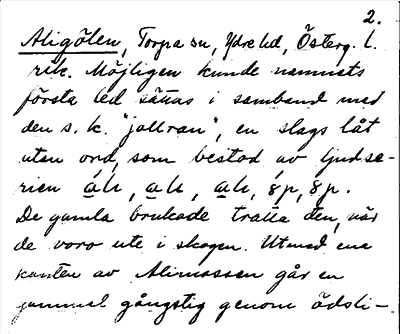 2.
Aligölen, Torpa sn, Ydre hd, Österg. l.
rik. Möjligen kunde namnets
första led sättas i samband med
den s.k. "joltran", en slags låt
uten ord, som bestod av ljudse-
rien áh, ah, ah, åp, åp.
De gamla brukade tratta den, när
de voro ute i skogen. Utmed ena
kanten av Alimossen går en
gammal gångstig genom ödsli-